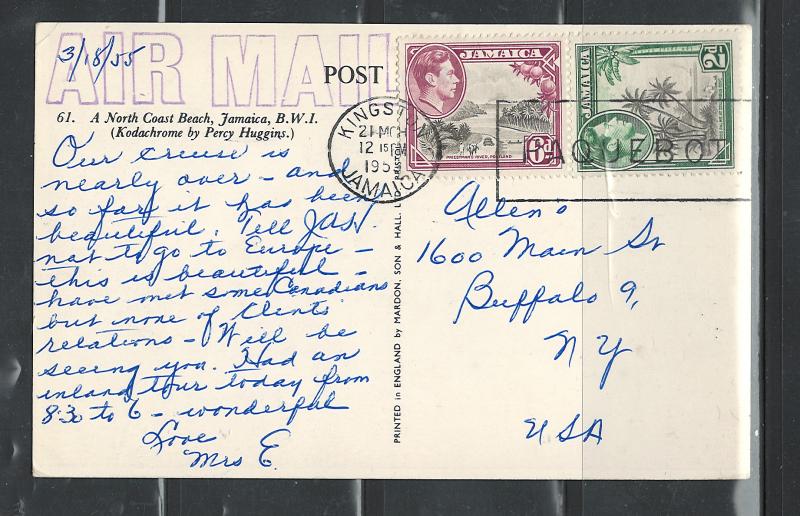 AIR MAIL
3/18/55
POST
61. A North Coast Beach, Jamaica, B.W.I.
(Kodachrome by Percy Huggins.)
Our cruise is
nearly over - and
so far it has been
beautiful. Tell
not to go to Europe -
this is beautiful -
have met some Canadians
but none of Clints
relations - Will be
seeing you. Had an
inland tour today from
8:30 to 6 - wonderful
Love
Mrs E.
PRINTED in ENGLAND by MARDON, SON & HALL,
BRISTOL
JAMAICA
6d
JAMAICA
2d
KINGSTON
21 MCH
12 15 PM
195
JAMAICA
PAQUEBOT
Allen's
1600 Main St
Buffalo 9,
NY
USA